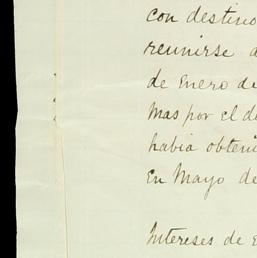 con destino
reunirse a
de Enero de
Mas por el d
habia obteni
En Mayo de
Intereses de